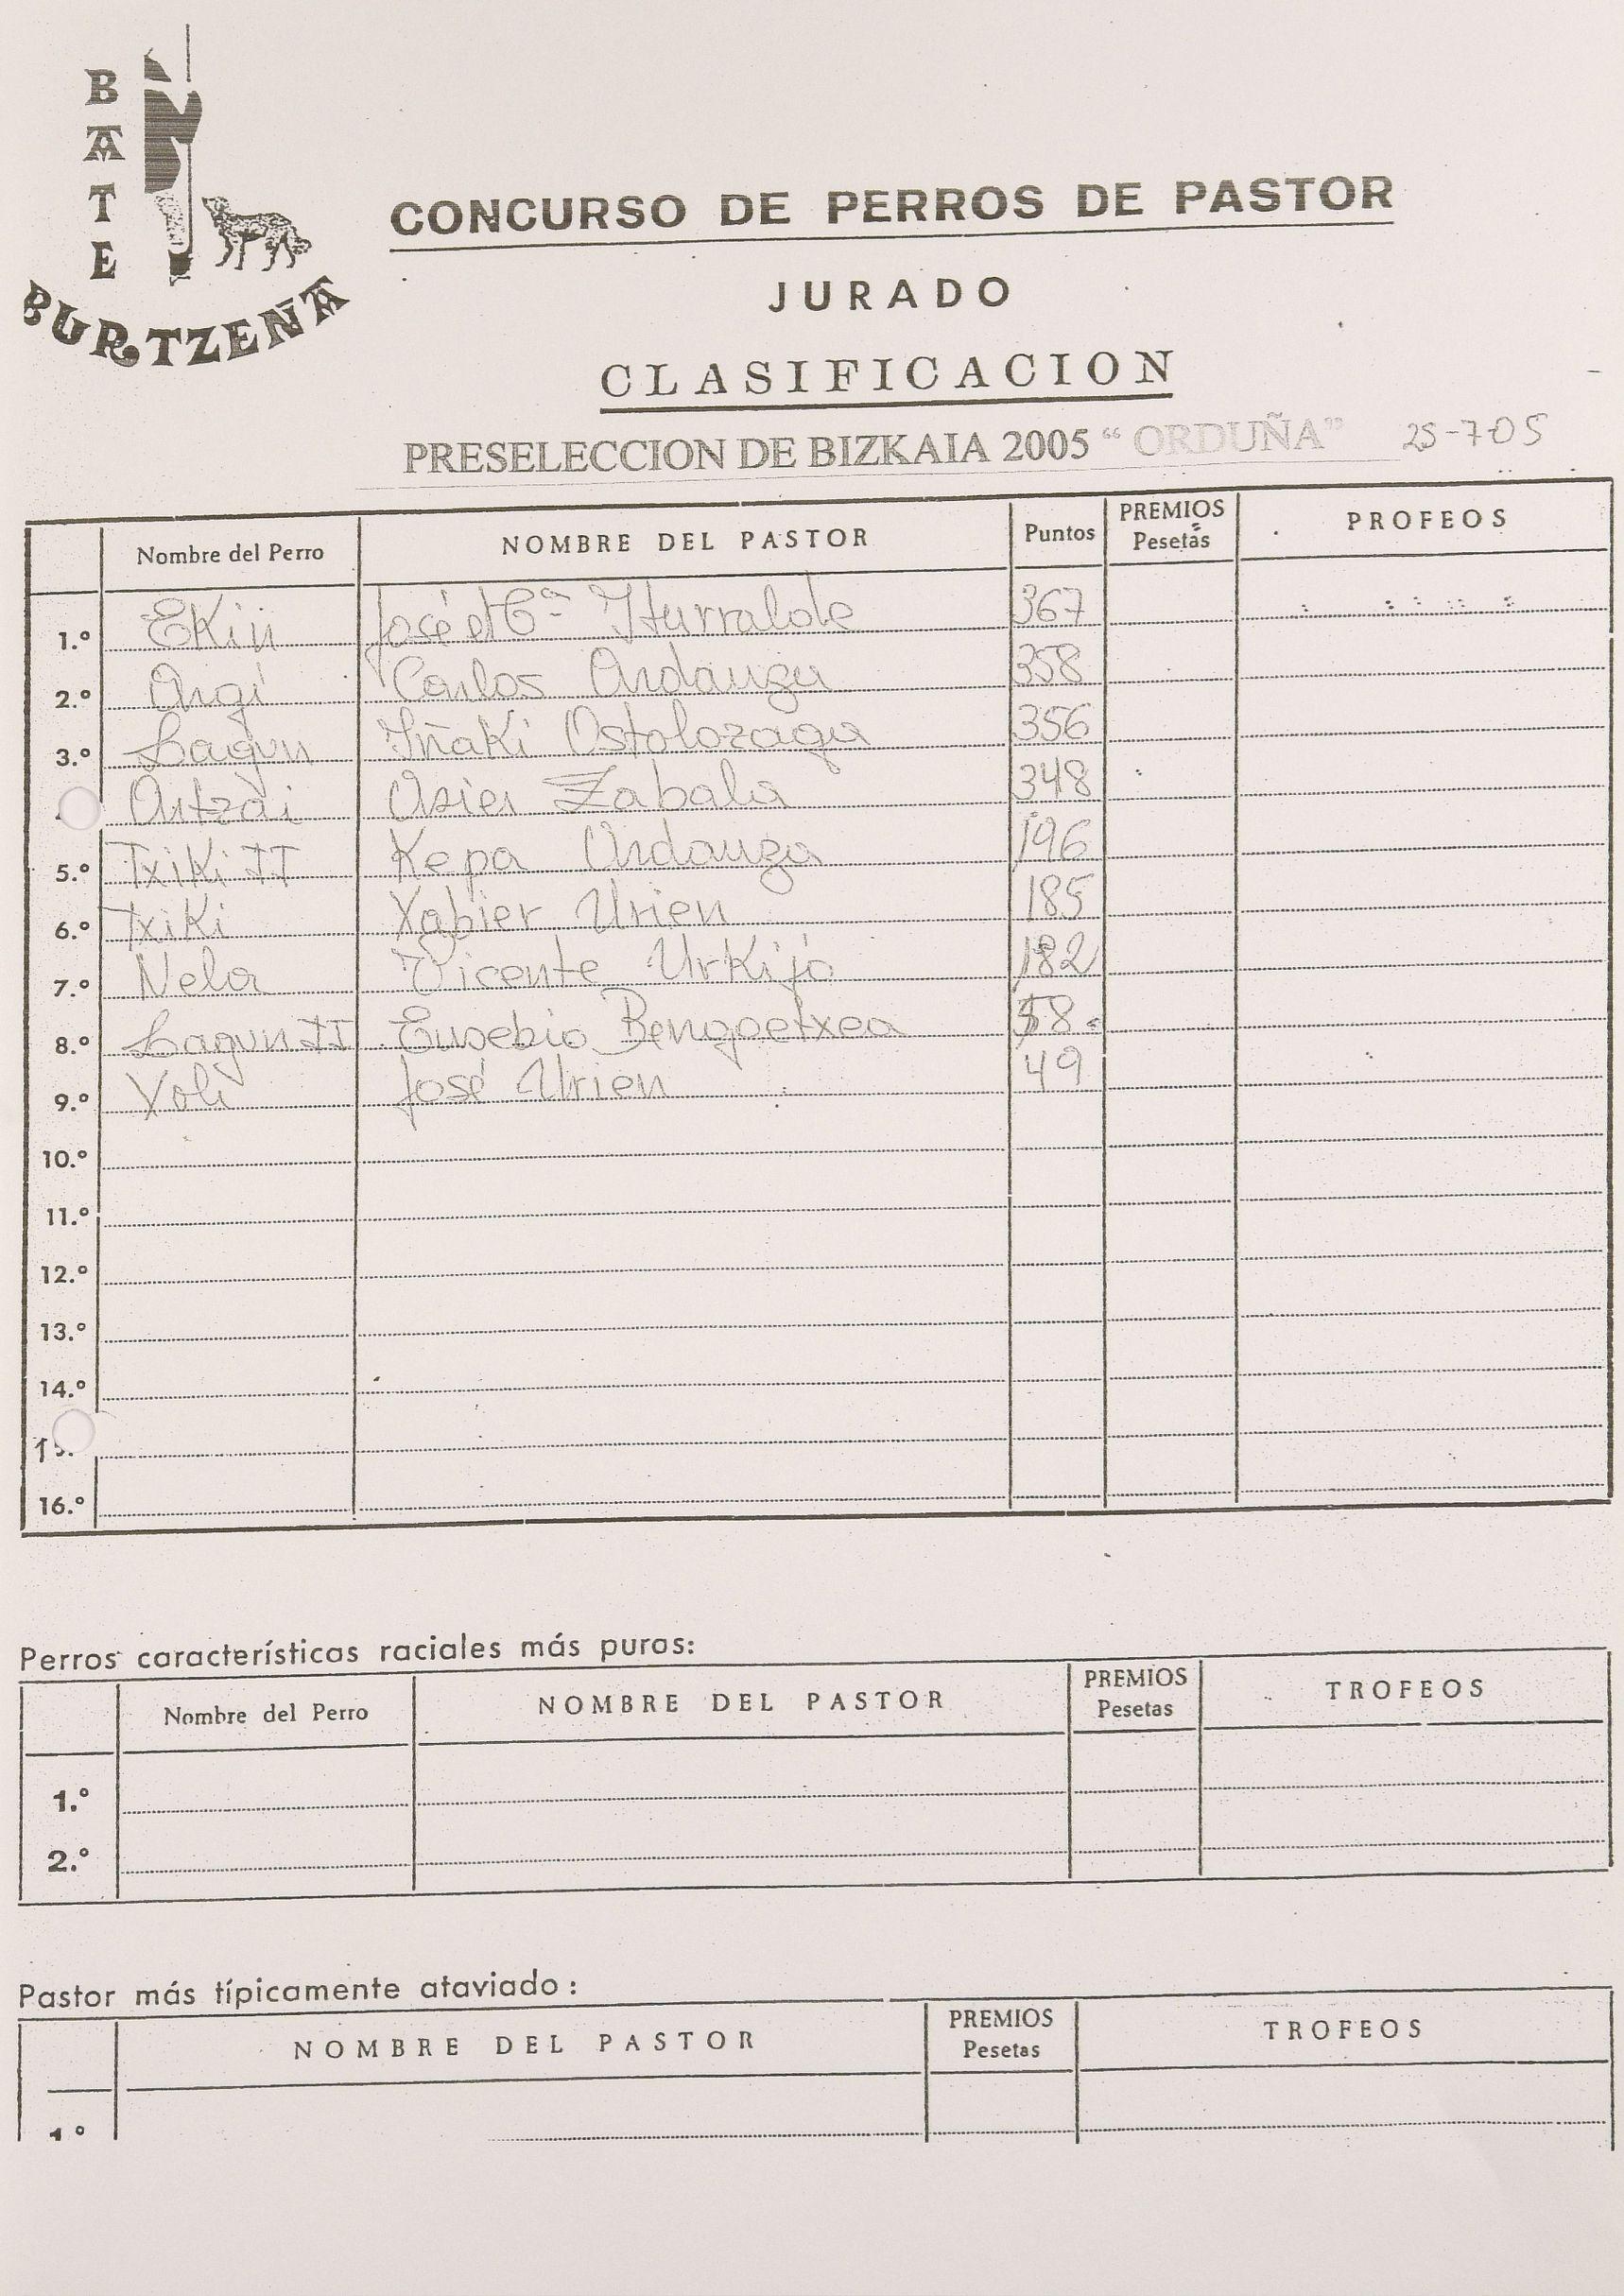 BATE
BURTZEÑA
CONCURSO DE PERROS DE PASTOR
JURADO
CLASIFICACION
PRESELECCION DE BIZKAIA 2005 “ ORDUÑA” 25-7-05
Nombre del Perro NOMBRE DEL PASTOR Puntos PREMIOS Pesetas PROFEOS
1.º Ekiñ José Mª Iturralde 367
2.º Argi Carlos Ardanza 358
3.º Lagun Iñaki Ostolozaga 356
Artzai Asier Zabala 348
5.º Txiki II Kepa Ardanza 196
6.º Txiki Xabier Urien 185
7.º Nela Vicente Urkijo 182
8.º Lagun II Eusebio Bengoetxea 58
9.º Yoli José Urien 49
10.º
11.º
12.º
13.º
14.º
15.
16.º
Perros características raciales más puras:
Nombre del Perro NOMBRE DEL PASTOR PREMIOS Pesetas TROFEOS
1.º
2.º
Pastor más típicamente ataviado :
NOMBRE DEL PASTOR PREMIOS Pesetas TROFEOS
1º